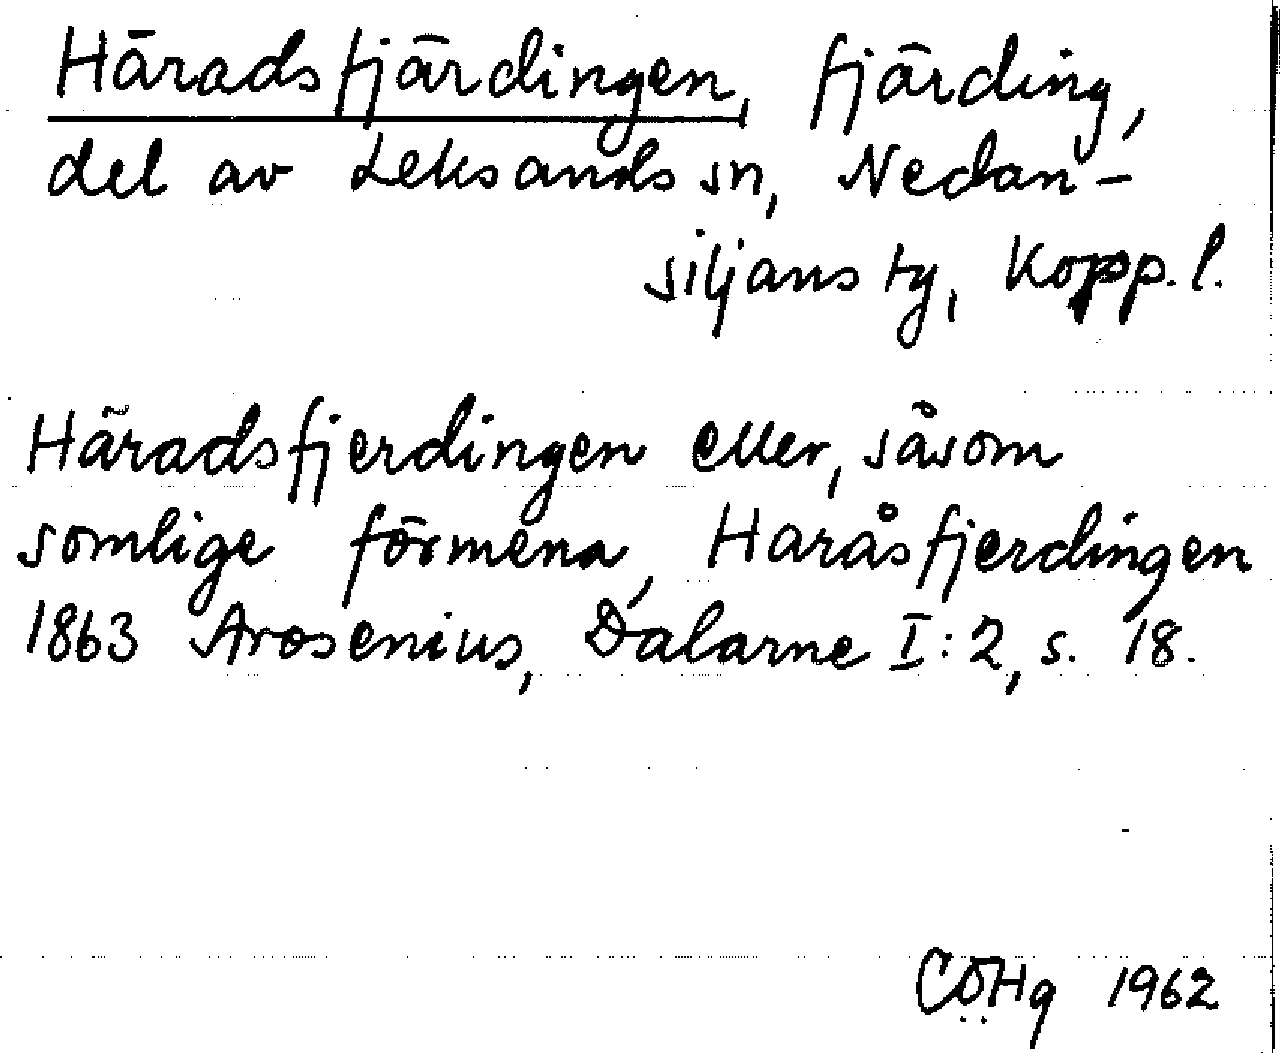 Häradsfjärdingen, fjärding,
del av Leksands sn, Nedan-
siljans tg, Kopp. l.
Häradsfjerdingen eller, såsom
somlige förmena, Haråsfjerdingen
1863 Arosenius, Dalarne I:2, s. 18.
CÖHg 1962